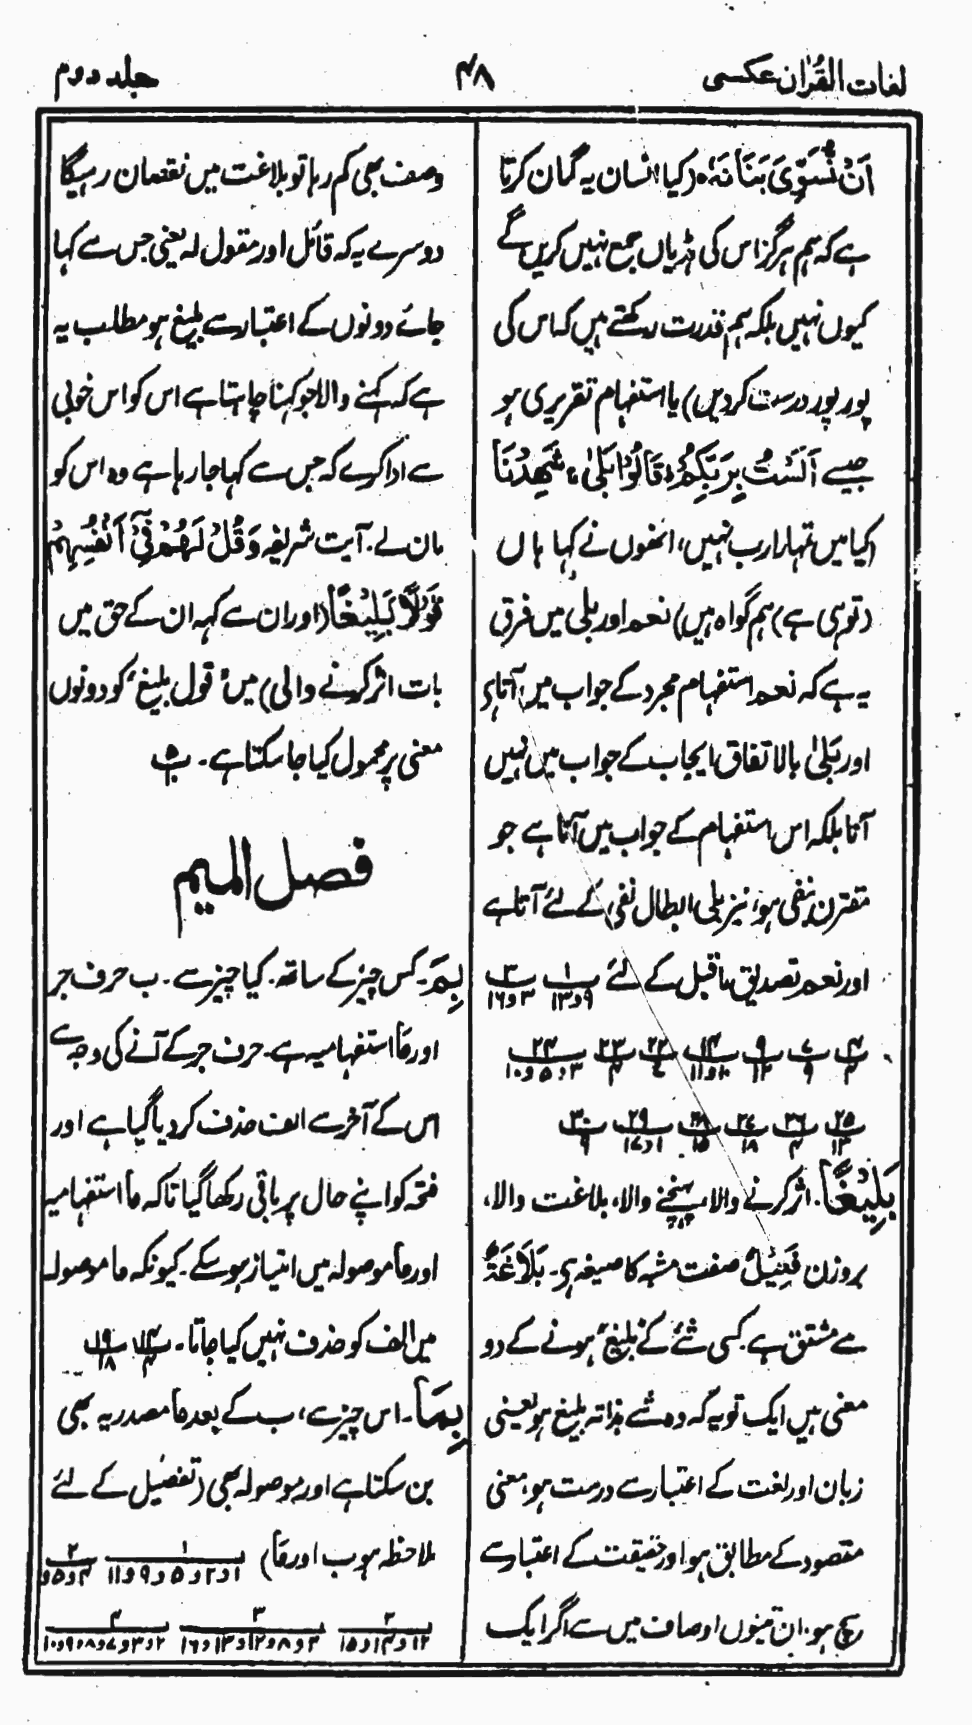 لغات القرآن عکسی
۴۸
جلد دوم
اَنْ نُّسَوِّیَ بَنَانَہٗ ہ (کیا انسان یہ گمان کرتا
ہے کہ ہم ہرگز اس کی ہڈیاں جمع نہیں کریں گے
کیوں نہیں بلکہ ہم قدرت رکھتے ہیں کہ اس کی
پور پور درست کردیں) یا استفہام تقریری ہو
جیسے اَلَسْتُ بِرَبِّکُمْ؛ قَالُوْا بَلٰی؛ شَھِدْنَا
(کیا میں تمہارا رب نہیں، انھوں نے کہا ہاں
(تو ہی ہے) ہم گواہ ہیں) نعم اور بلی میں فرق
یہ ہے کہ نعم استفہام مجرد کے جواب میں آتا ہے
اور بَلٰی بالاتفاق ایجاب کے جواب میں نہیں
آتا بلکہ اس استفہام کے جواب میں آتا ہے جو
مقترن بنفی ہو، نیز بلی ابطال نفی کے لئے آتا ہے
اور نعم تصدیق ماقبل کے لئے ۱/۹و۱۳ ۳/۳و۱۶
۴/۴ ۷/۹ ۹/۱۲ ۱۴/۱۰و۱۱ ۲۲/۷ ۲۳/۴ ۲۴/۳و۵و۱۰
۲۵/۱۳ ۲۶/۴ ۲۷/۱۸ ۲۸/۱۵ ۲۹/۱و۱۷ ۳۰/۹
بَلِیْغًا۔ اثر کرنے والا، پہنچنے والا، بلاغت والا،
بروزن فَعِیْلٌ صفت مشبہ کا صیغہ ہے۔ بَلَاغَۃٌ
سے مشتق ہے۔ کسی شئے کے بلیغ ہونے کے دو
معنی ہیں ایک تو یہ کہ وہ شے بذاتہ بلیغ ہو یعنی
زبان اور لغت کے اعتبار سے درست ہو، معنی
مقصود کے مطابق ہو اور حقیقت کے اعتبار سے
سچ ہو۔ ان تینوں اوصاف میں سے اگر ایک
وصف بھی کم رہا تو بلاغت میں نقصان رہیگا
دوسرے یہ کہ قائل اور مقول لہ یعنی جس سے کہا
جائے دونوں کے اعتبار سے بلیغ ہو مطلب یہ
ہے کہ کہنے والا جو کہنا چاہتا ہے اس کو اس خوبی
سے ادا کرے کہ جس سے کہا جا رہا ہے وہ اس کو
مان لے۔ آیت شریفہ وَقُلْ لَّھُمْ فِیْٓ اَنْفُسِھِمْ
قَوْلًا بَلِیْغًا (اور ان سے کہہ ان کے حق میں
بات اثر کرنے والی) میں قول بلیغ کو دونوں
معنی پر محمول کیا جا سکتا ہے۔ ۵/۶
فصل المیم
بِمَ۔ کس چیز کے ساتھ۔ کیا چیز سے۔ ب حرف جر
اور مَا استفہامیہ ہے۔ حرف جر کے آنے کی وجہ سے
اس کے آخر سے الف حذف کر دیا گیا ہے اور
فتحہ کو اپنے حال پر باقی رکھا گیا تاکہ مَا استفہامیہ
اور مَا موصولہ میں امتیاز ہو سکے۔ کیونکہ ما موصولہ
میں الف کو حذف نہیں کیا جاتا۔ ۱۴/۴ ۱۹/۱۸
بِمَا۔ اس چیز سے، ب کے بعد مَا مصدریہ بھی
بن سکتا ہے اور موصولہ بھی (تفصیل کے لئے
ملاحظہ ہو ب اور مَا) ۱/۱و۲و۵و۹و۱۱ ۲/۴و۵و
۲/۱۲و۱۴و۱۵ ۳/۴و۸و۱۲و۱۳و۱۶ ۴/۲و۳و۷و۸و۹و۱۰